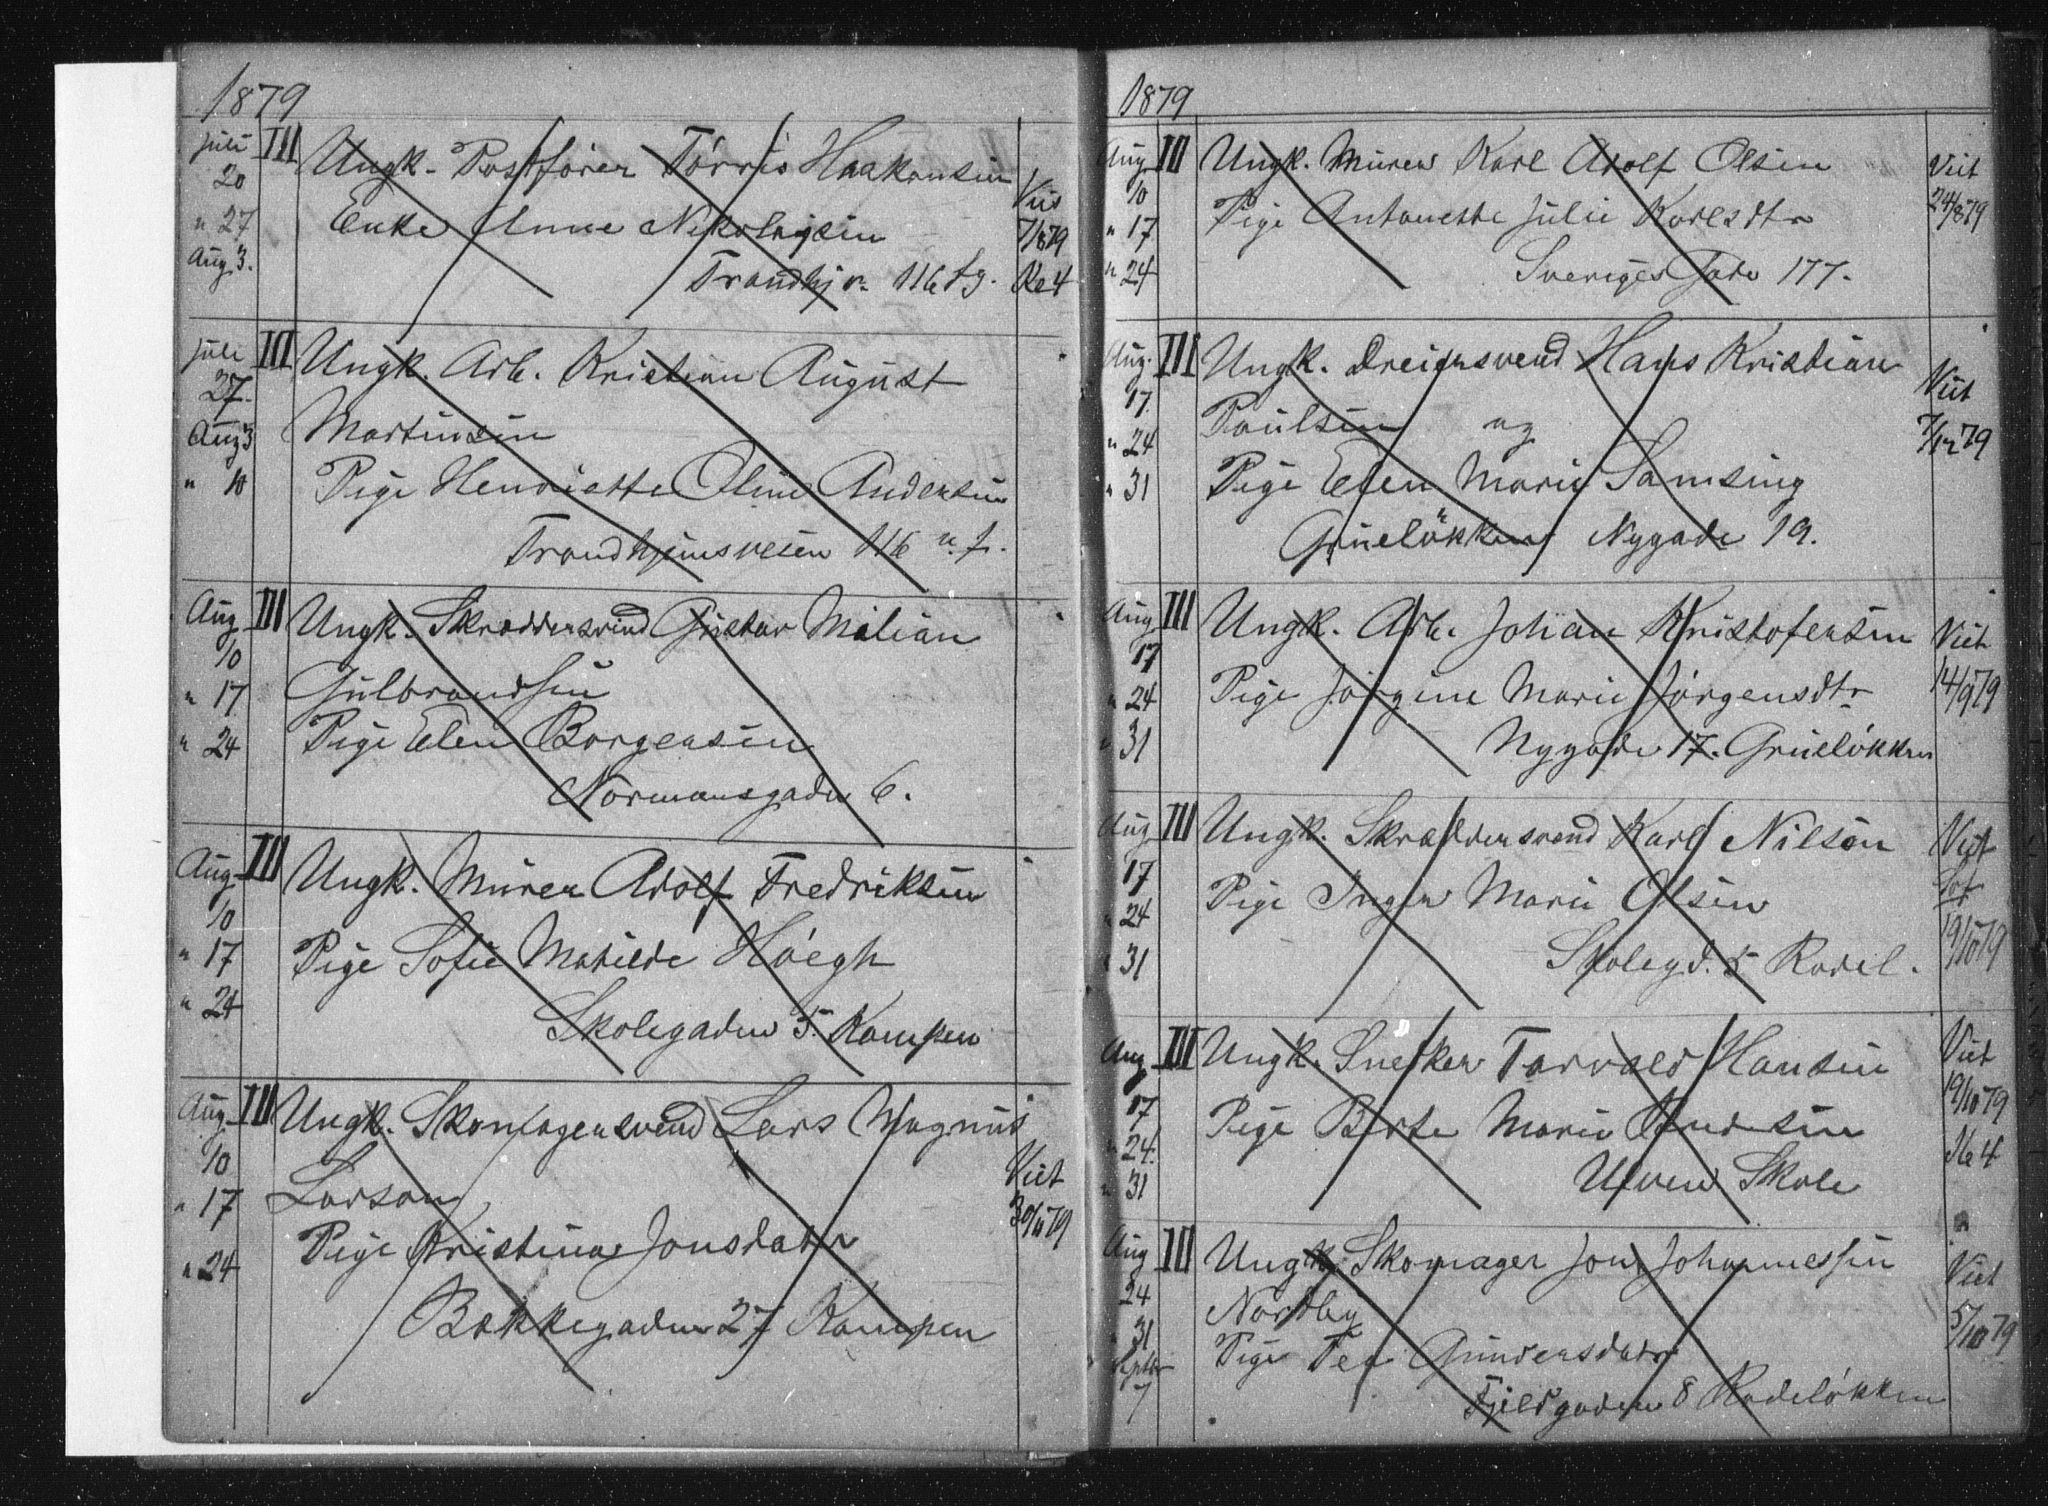 1879
Juli III Ungk. Postfører Tórris Haakonsen
20 Enke Anne Nikolajsen Viet
" 27 7/8 79
Aug 3. Trondhjv. 116 Ke 4
Juli III Ungk. Arb. Kristian August
27.
Aug 3 Martinsen
" 10 Pige Henriette Oline Andersen
Trondhjemsveien 116
Aug III Ungk. Skræddersvend Gustav Milian
10
" 17 Gulbrandsen
" 24 Pige Elen Borgersen
Normansgaden 6.
Aug. III Ungk. Murer Adolf Fredriksen
10
" 17 Pige Sofie Matilde Høegh
" 24
Skolegaden 5. Kampen
Aug. III Ungk. Skomagersvend Lars Magnus
10 Viet
" 17 Larson 30/11 79
" 24 Pige Kristina Jonsdatr
Bækkegaden 27 Kampen
1879
Aug III Ungk. Murer Karl Adolf Olsen Viet
10 24/8 79
" 17 Pige Antonette Julie Karlsdtr
" 24 Sveriges Gade 177.
Aug. III Ungk. Dreiersvend Hans Kristian Viet
17. 7/12 79
" 24 Paulsen og
" 31 Pige Elen Marie Samsing
Grüeløkken Nygade 19.
Aug III Ungk. Arb. Johan Kristofersen Viet
17 14/9 79
" 24 Pige Jørgine Marie Jørgensdtr
" 31 Nygade 17. Grüeløkken
Aug III Ungk. Skræddersvend Karl Nilsen Viet
17 19/10 79
" 24 Pige Inger Marie Olsen
" 31 Skolegd. 5 Rodel.
Aug III Ungk. Snekker Torvald Hansen Viet
17 19/10 79
" 24. Pige Berte Marie Andersen Ke 4
" 31 Ulven Skole
Aug III Ungk. Skomager Jon Johannessen Viet
24 Nordby 5/10 79
" 31 Pige Tea Gundersdatr
Septbr
7 Fjeldgaden 8 Rodeløkken